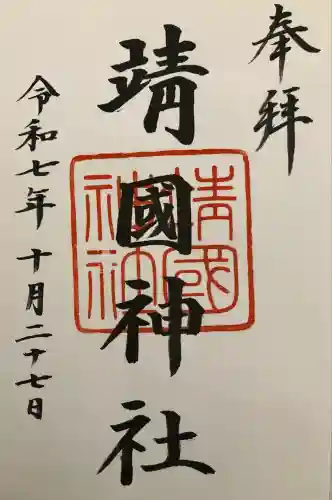 奉拜
靖國神社
靖國
神社
令和七年十月二十七日